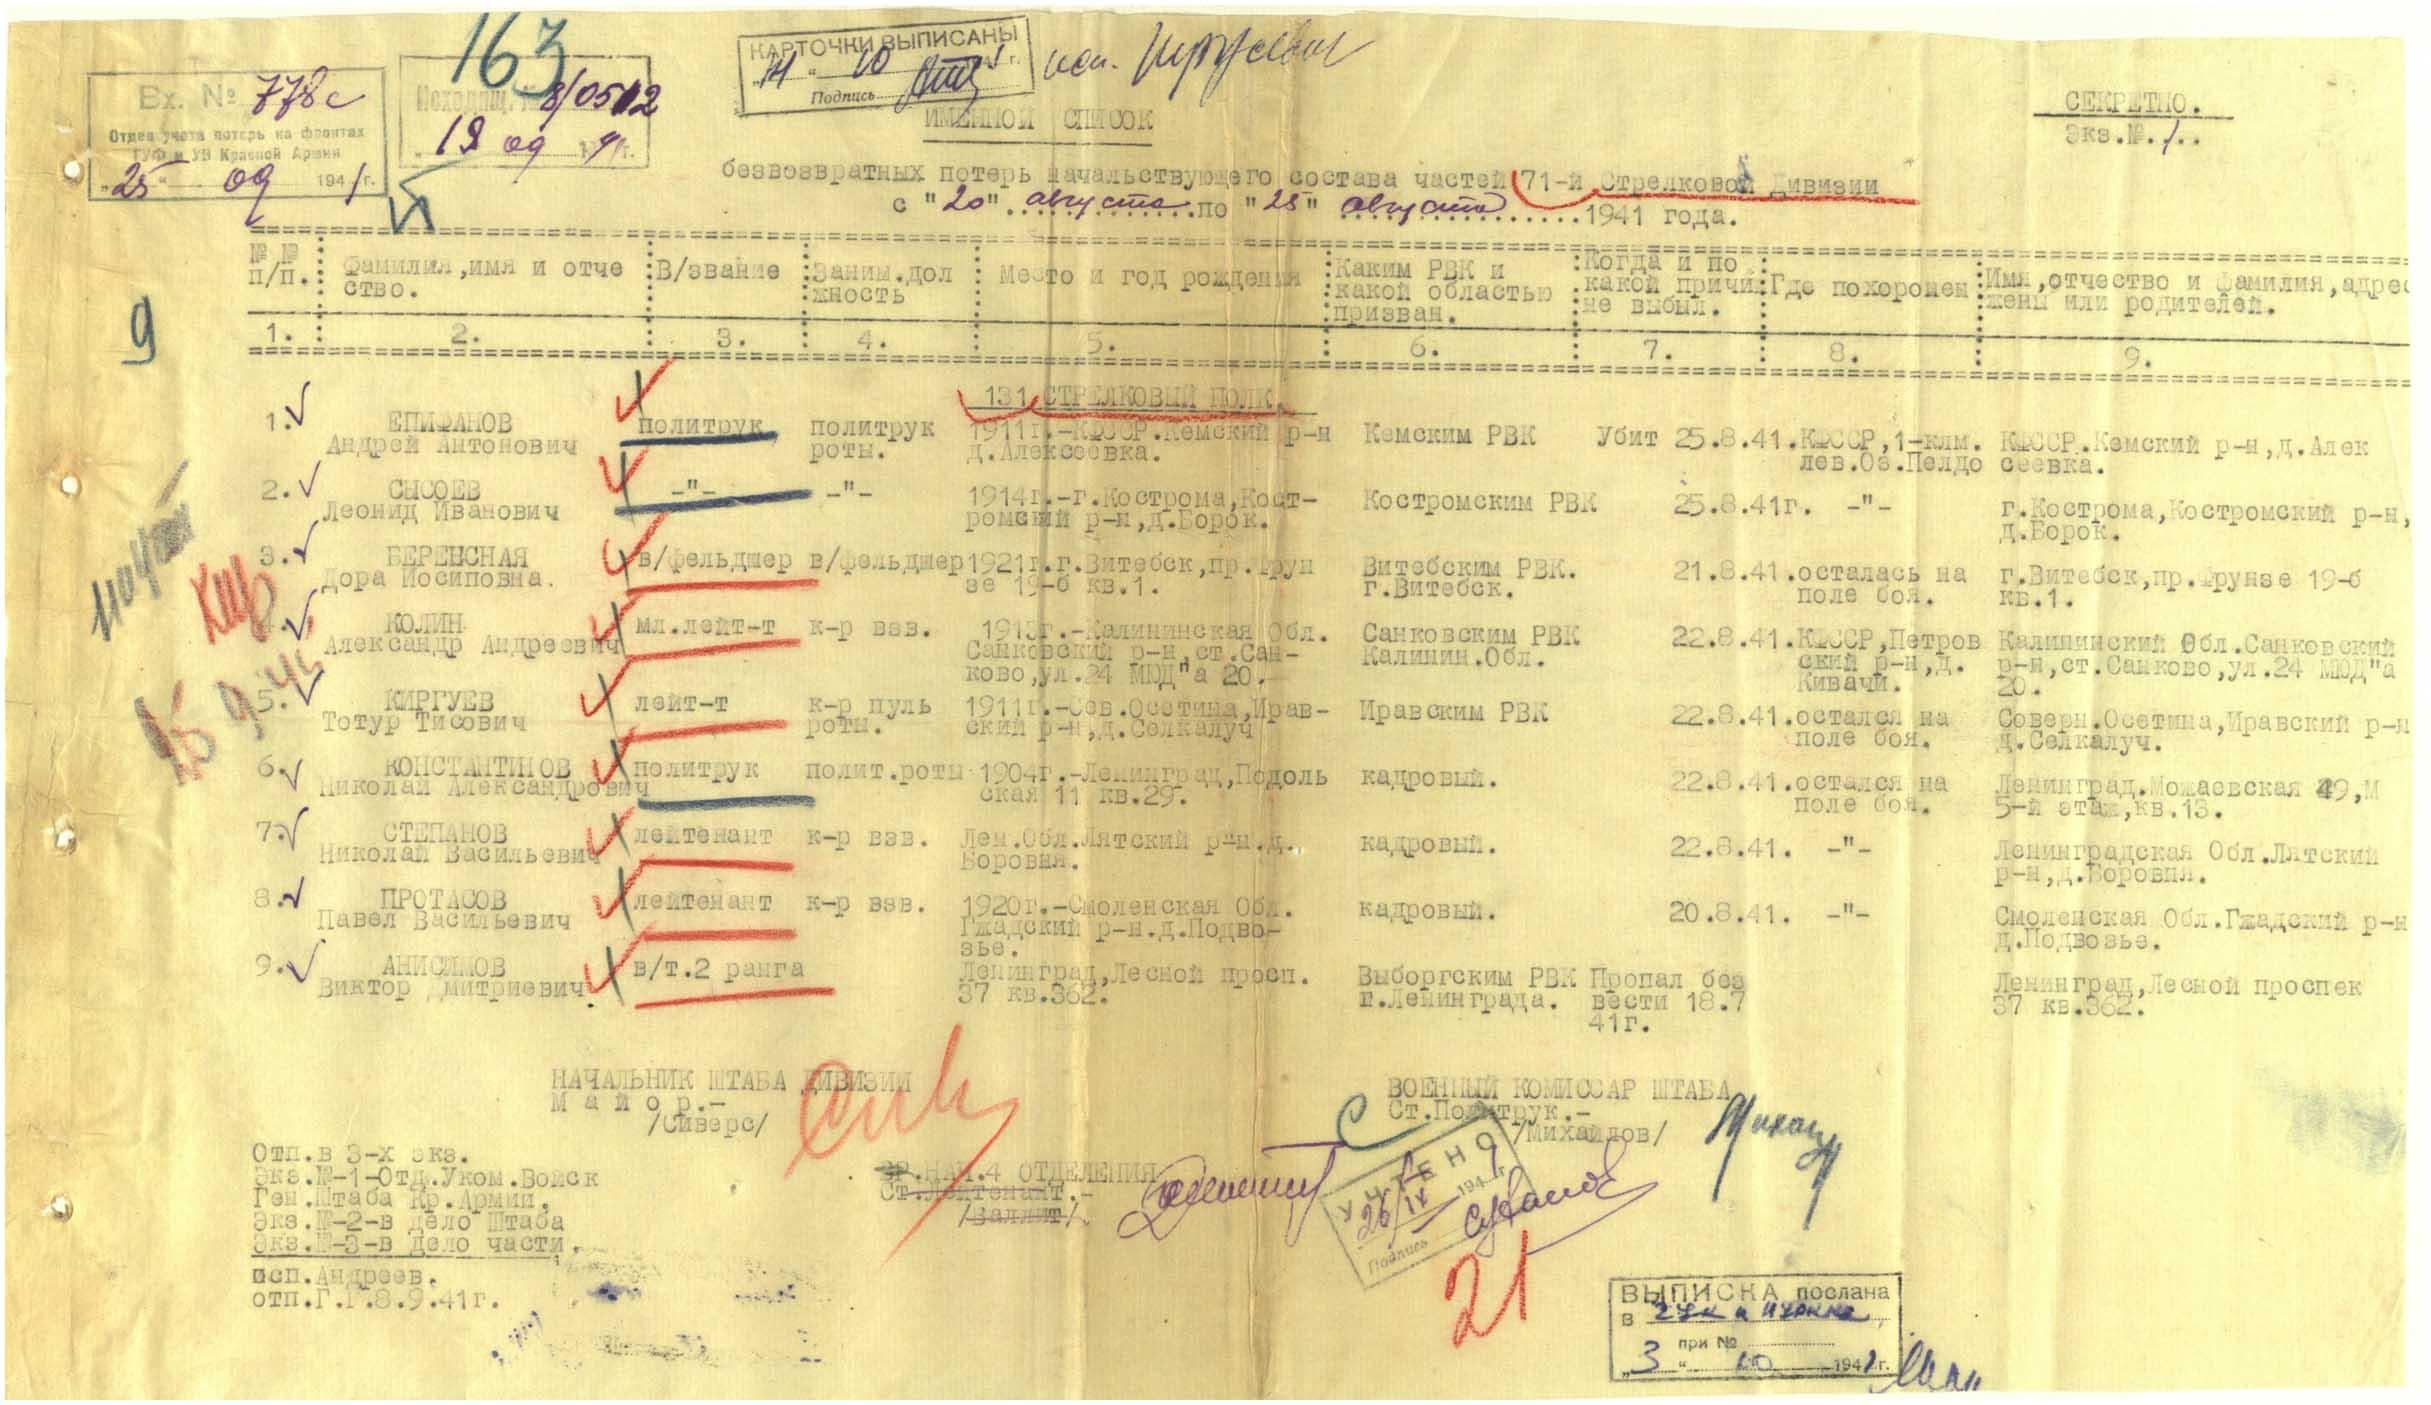 163
Вх. № 778с
Отдел учета потерь на фронтах
ГУФ и УВ Красной Армии
"25" 09 1941г.
Исходящ. 8/0512
"19 09 194 г.
КАРТОЧКИ ВЫПИСАНЫ
"14" 10 г.
Подпись
исп.
СЕКРЕТНО.
Экз.№.1..
ИМЕННОЙ СПИСОК
безвозвратных потерь начальствующего состава частей 71-й Стрелковой Дивизии
с "20" августа по "25" августа 1941 года.
№ № п/п. : Фамилия,имя и отче ство. : В/звание : Заним.дол жность : Место и год рождения : Каким РВК и какой областью призван. : Когда и по какой причи не выбыл. : Где похоронен : Имя,отчество и фамилия,адрес жены или родителей.
1. : 2. : 3. : 4. : 5. : 6. : 7. : 8. : 9.
9
131 СТРЕЛКОВЫЙ ПОЛК.
1. ЕПИФАНОВ политрук политрук 1911г.-КФССР.Кемский р-н Кемским РВК Убит 25.8.41.КФССР,1-клм. КФССР.Кемский р-н,д.Алек
Андрей Антонович роты. д.Алексеевка. лев.Оз.Пелдо сеевка.
2. СЫСОЕВ -"- -"- 1914г.-г.Кострома,Кост- Костромским РВК 25.8.41г. -"- г.Кострома,Костромский р-н,
Леонид Иванович ромский р-н,д.Борок. д.Борок.
3. БЕРЕНСНАЯ в/фельдшер в/фельдшер 1921г.г.Витебск,пр.Фрун Витебским РВК. 21.8.41.осталась на г.Витебск,пр.Фрунзе 19-б
Дора Иосиповна. зе 19-б кв.1. г.Витебск. поле боя. кв.1.
4. КОЛИН мл.лейт-т к-р взв. 1913г.-Калининская Обл. Санковским РВК 22.8.41.КФССР,Петров Калининский Обл.Санковский
Александр Андреевич Санковский р-н,ст.Сан- Калинин.Обл. ский р-н,д. р-н,ст.Санково,ул.24 МЮД"а
ково,ул.24 МЮД"а 20.- Кивачи. 20.
5. КИРГУЕВ лейт-т к-р пуль 1911г.-Сев.Осетина,Ирав- Иравским РВК 22.8.41.остался на Соверн.Осетина,Иравский р-н
Тотур Тисович роты. ский р-н,д.Селкалуч поле боя. д.Селкалуч.
6. КОНСТАНТИНОВ политрук полит.роты 1904г.-Ленинград,Подоль кадровый. 22.8.41.остался на Ленинград.Можаевская 49,М
Николай Александрович ская 11 кв.29. поле боя. 5-й этаж,кв.13.
7. СТЕПАНОВ лейтенант к-р взв. Лен.Обл.Лятский р-н.д. кадровый. 22.8.41. -"- Ленинградская Обл.Лятский
Николай Васильевич Боровня. р-н,д.Боровня.
8. ПРОТАСОВ лейтенант к-р взв. 1920г.-Смоленская Обл. кадровый. 20.8.41. -"- Смоленская Обл.Гжадский р-н
Павел Васильевич Гжадский р-н.д.Подво- д.Подвозье.
зье.
9. АНИСИМОВ в/т.2 ранга Ленинград,Лесной просп. Выборгским РВК Пропал без Ленинград,Лесной проспек
Виктор Дмитриевич 37 кв.362. г.Ленинграда. вести 18.7 37 кв.362.
41г.
НАЧАЛЬНИК ШТАБА ДИВИЗИИ
Майор.-
/Сиверс/
ВОЕННЫЙ КОМИССАР ШТАБА
Ст.Политрук.-
/Михайлов/
НАЧ.4 ОТДЕЛЕНИЯ
Ст.Лейтенант.-
/Валлит/
УЧТЕНО
26/IX 194 г.
Подпись
21
Отп.в 3-х экз.
Экз.№-1-Отд.Уком.Войск
Ген.Штаба Кр.Армии.
Экз.№-2-в дело Штаба
Экз.№-3-в дело части.
исп.Андреев.
отп.Г.Г.8.9.41г.
ВЫПИСКА послана
в
при №
"3" 10 1941г.